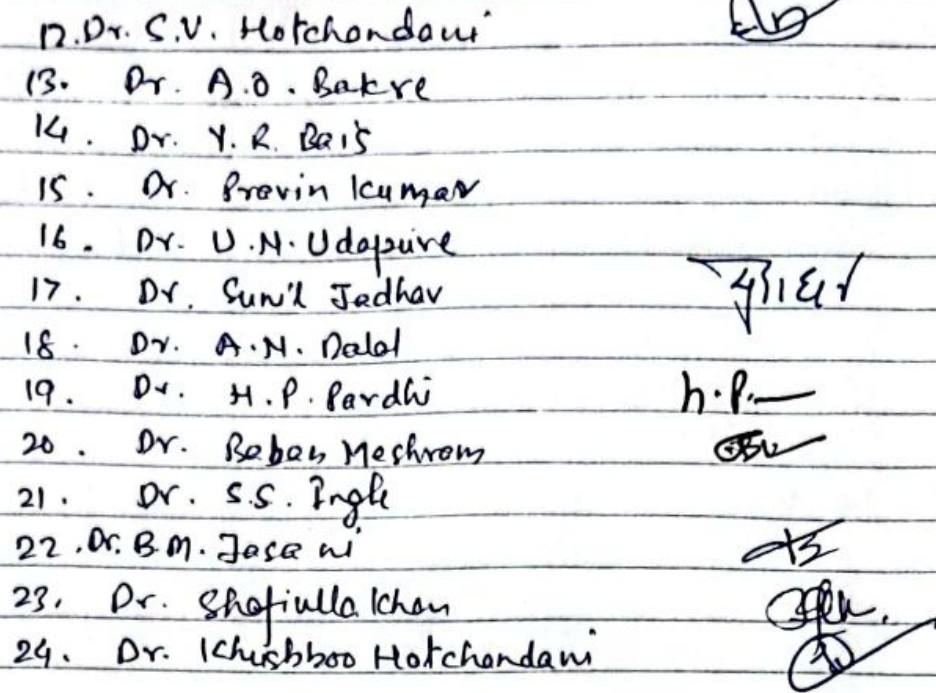 12. Dr. S.V. Hotchandani
13. Dr. A.O. Bakre
14. Dr. Y.R. Bais
15. Dr. Pravin Kumar
16. Dr. U.N. Udapure
17. Dr. Sunil Jadhav
18. Dr. A.N. Dalal
19. Dr. H.P. Pardhi h.P.
20. Dr. Baban Meshram
21. Dr. S.S. Ingle
22. Dr. B.M. Jasani
23. Dr. Shafiulla Khan
24. Dr. Khushboo Hotchandani